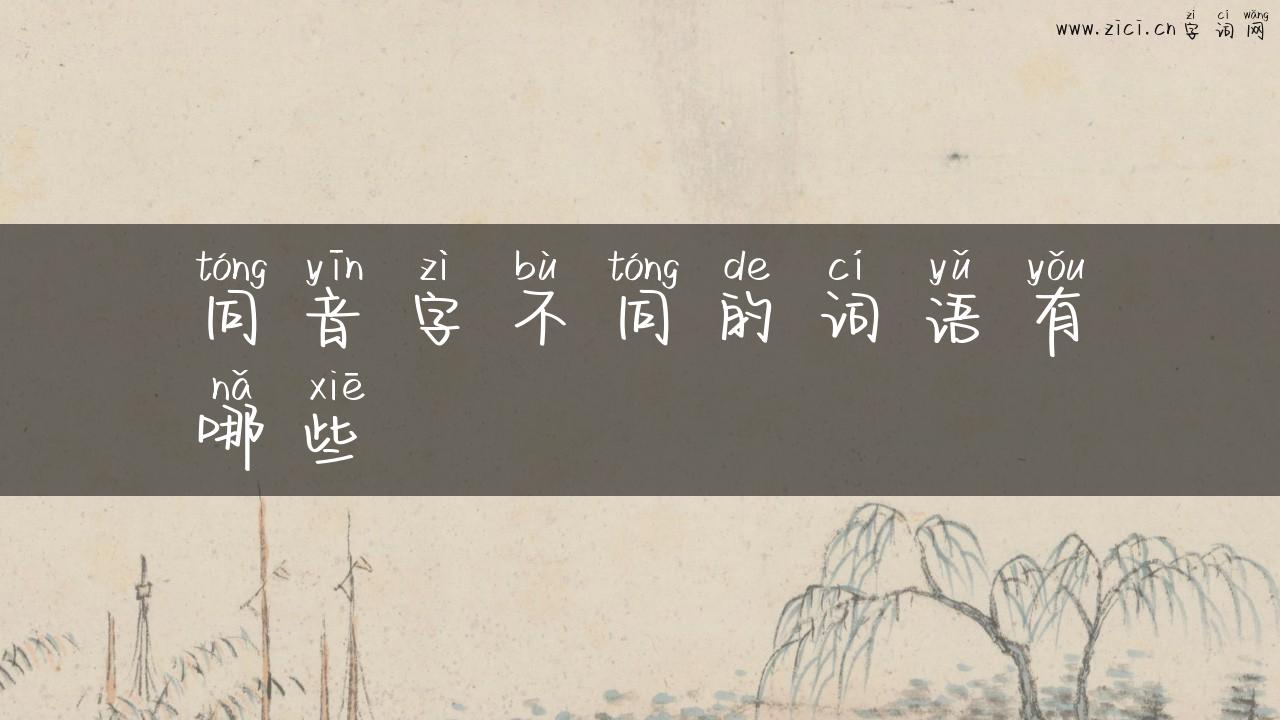 zì cí wǎng
www.zici.cn 字词网
tóng yīn zì bù tóng de cí yǔ yǒu
同音字不同的词语有
nǎ xiē
哪些